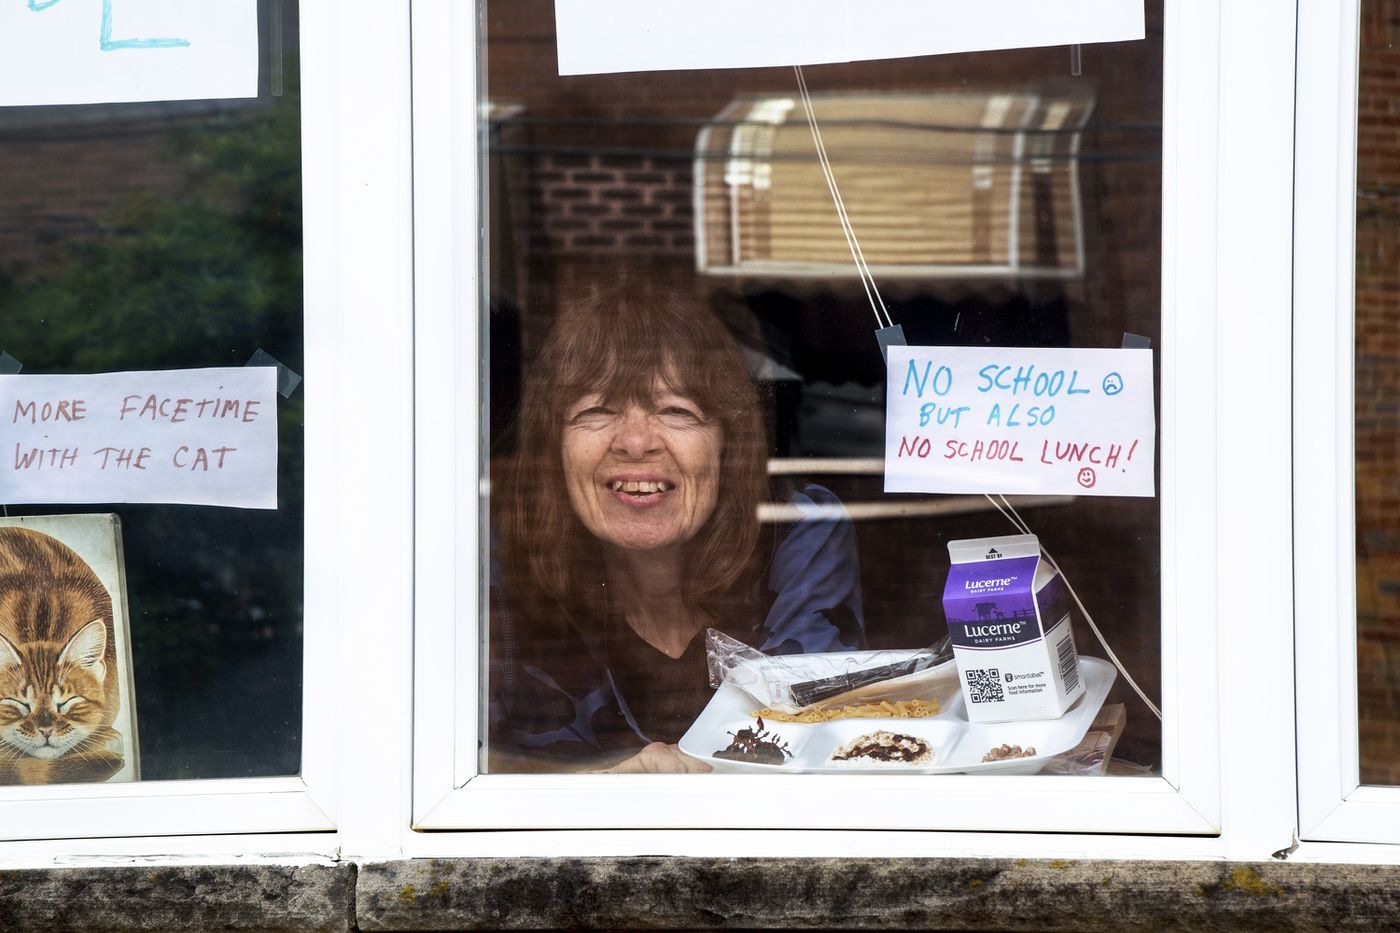 MORE FACETIME
WITH THE CAT
NO SCHOOL
BUT ALSO
NO SCHOOL LUNCH!
BEST BY
Lucerne™
DAIRY FARMS
Lucerne™
DAIRY FARMS
smartlabel™
Scan here for more
food information